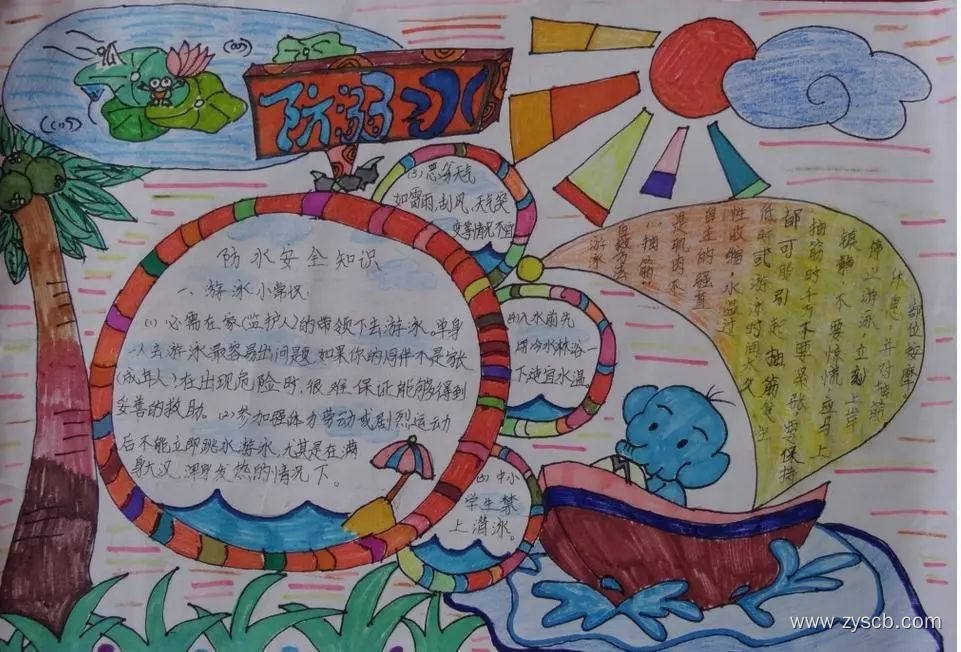 防溺水
防水安全知识
一、游泳小常识:
(1) 必需在家(监护人)的带领下去游泳。单身
一人去游泳最容易出问题,如果你的同伴不是家张
(成年人)在出现危险时,很难保证能够得到
妥善的救助。(2)参加强体力劳动或剧烈运动
后不能立即跳水游泳,尤其是在满
身大汉,浑身发热的情况下。
(3)恶劣天气
如雷雨,刮风,天气突
变等情况不宜
(4)入水前先
用冷水淋浴一
下适宜水温
中小
学生禁
上游泳。
游泳
自救方法
(一)抽筋:
是肌肉不
自主的强直
性收缩,水温过
低时或游泳时间太久
都可能引起抽筋发生
抽筋时千万不要紧张要保持
镇静,不要惊慌,应马上
停止游泳,立刻上岸
休息,并对抽筋
部位按摩。
www.zyscb.com